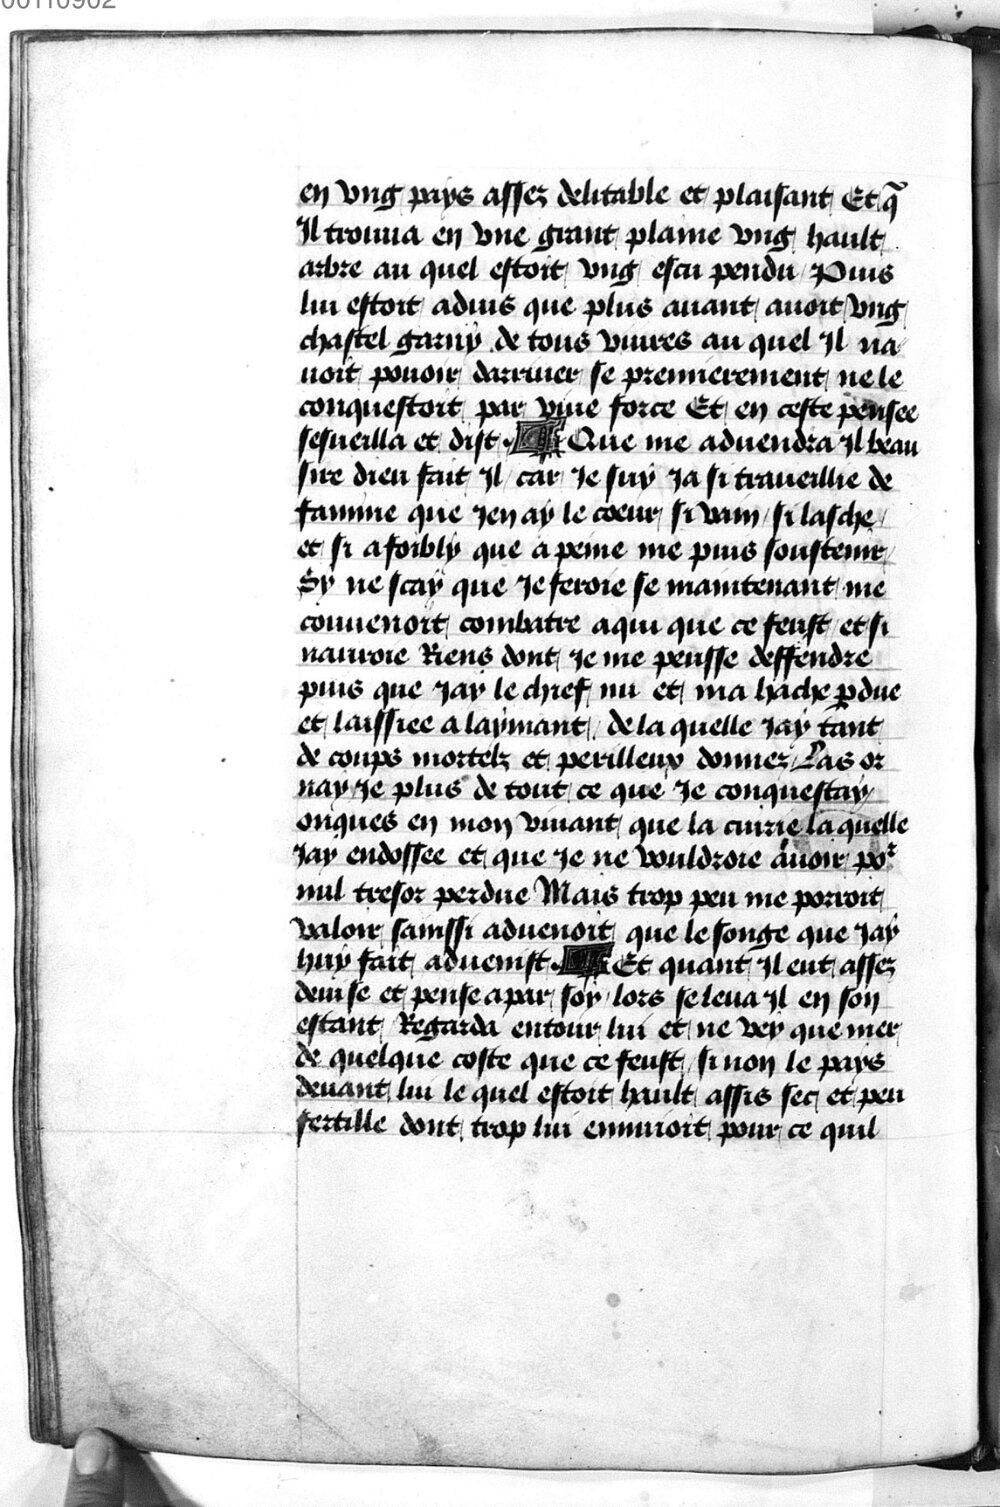 00110902
en vng pays assez delitable et plaisant Et q̃
Il trouua en vne grant plaine vng hault
arbre au quel estoit vng escu pendu Puis
lui estoit aduis que plus auant auoit vng
chastel garny de tous viures au quel Il na
uoit pouoir darriuer se premierement ne le
conquestoit par viue force Et en ceste pensee
sesueilla et dist . Que me aduendra Il beau
sire dieu fait Il car Je suy Ja si traueillie de
famine que Jen ay le coeur si vain / si lasche /
et si afoibly que a peine me puis soustenir
Sy ne scay que Je feroie se maintenant me
conuenoit combatre a qui que ce feust et si
nauroie Riens dont Je me peusse deffendre
puis que Jay le chief nu et ma hache ꝑdue
et laissiee a laymant / de la quelle Jay tant
de coups mortelz et perilleux donnez / Las or
nay Je plus de tout ce que Je conquestay
onques en mon viuant que la cuirie la quelle
Jay endossee et que Je ne vouldroie auoir poʳ
nul tresor perdue Mais trop peu me porroit
valoir sainssi aduenoit que le songe que Jay
huy fait aduenist . Et quant Il eut assez
deuise et pense a par soy / lors se leua Il en son
estant Regarda entour lui et ne vey que mer
de quelque coste que ce feust / si non le pays
deuant lui le quel estoit hault assis sec et peu
fertille dont trop lui ennuioit pour ce quil